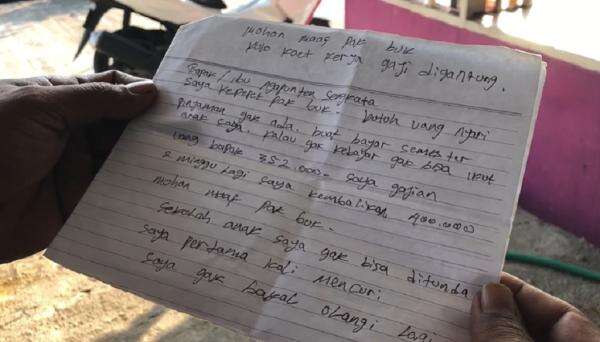 mohon maaf pak buk
kulo koet kerja gaji digantung.
Bapak / ibu ngapunten sengkata
Saya kepepet pak buk. butuh uang nyari
pinjaman gak ada. buat bayar semester
anak saya. kalau gak kebayar gak bisa ikut
uang bapak 352.000- saya gajian
2 minggu lagi saya kembalikan 400.000
mohon maaf pak buk.
sekolah anak saya gak bisa ditunda
saya pertama kali mencuri
saya gak bakal olangi lagi